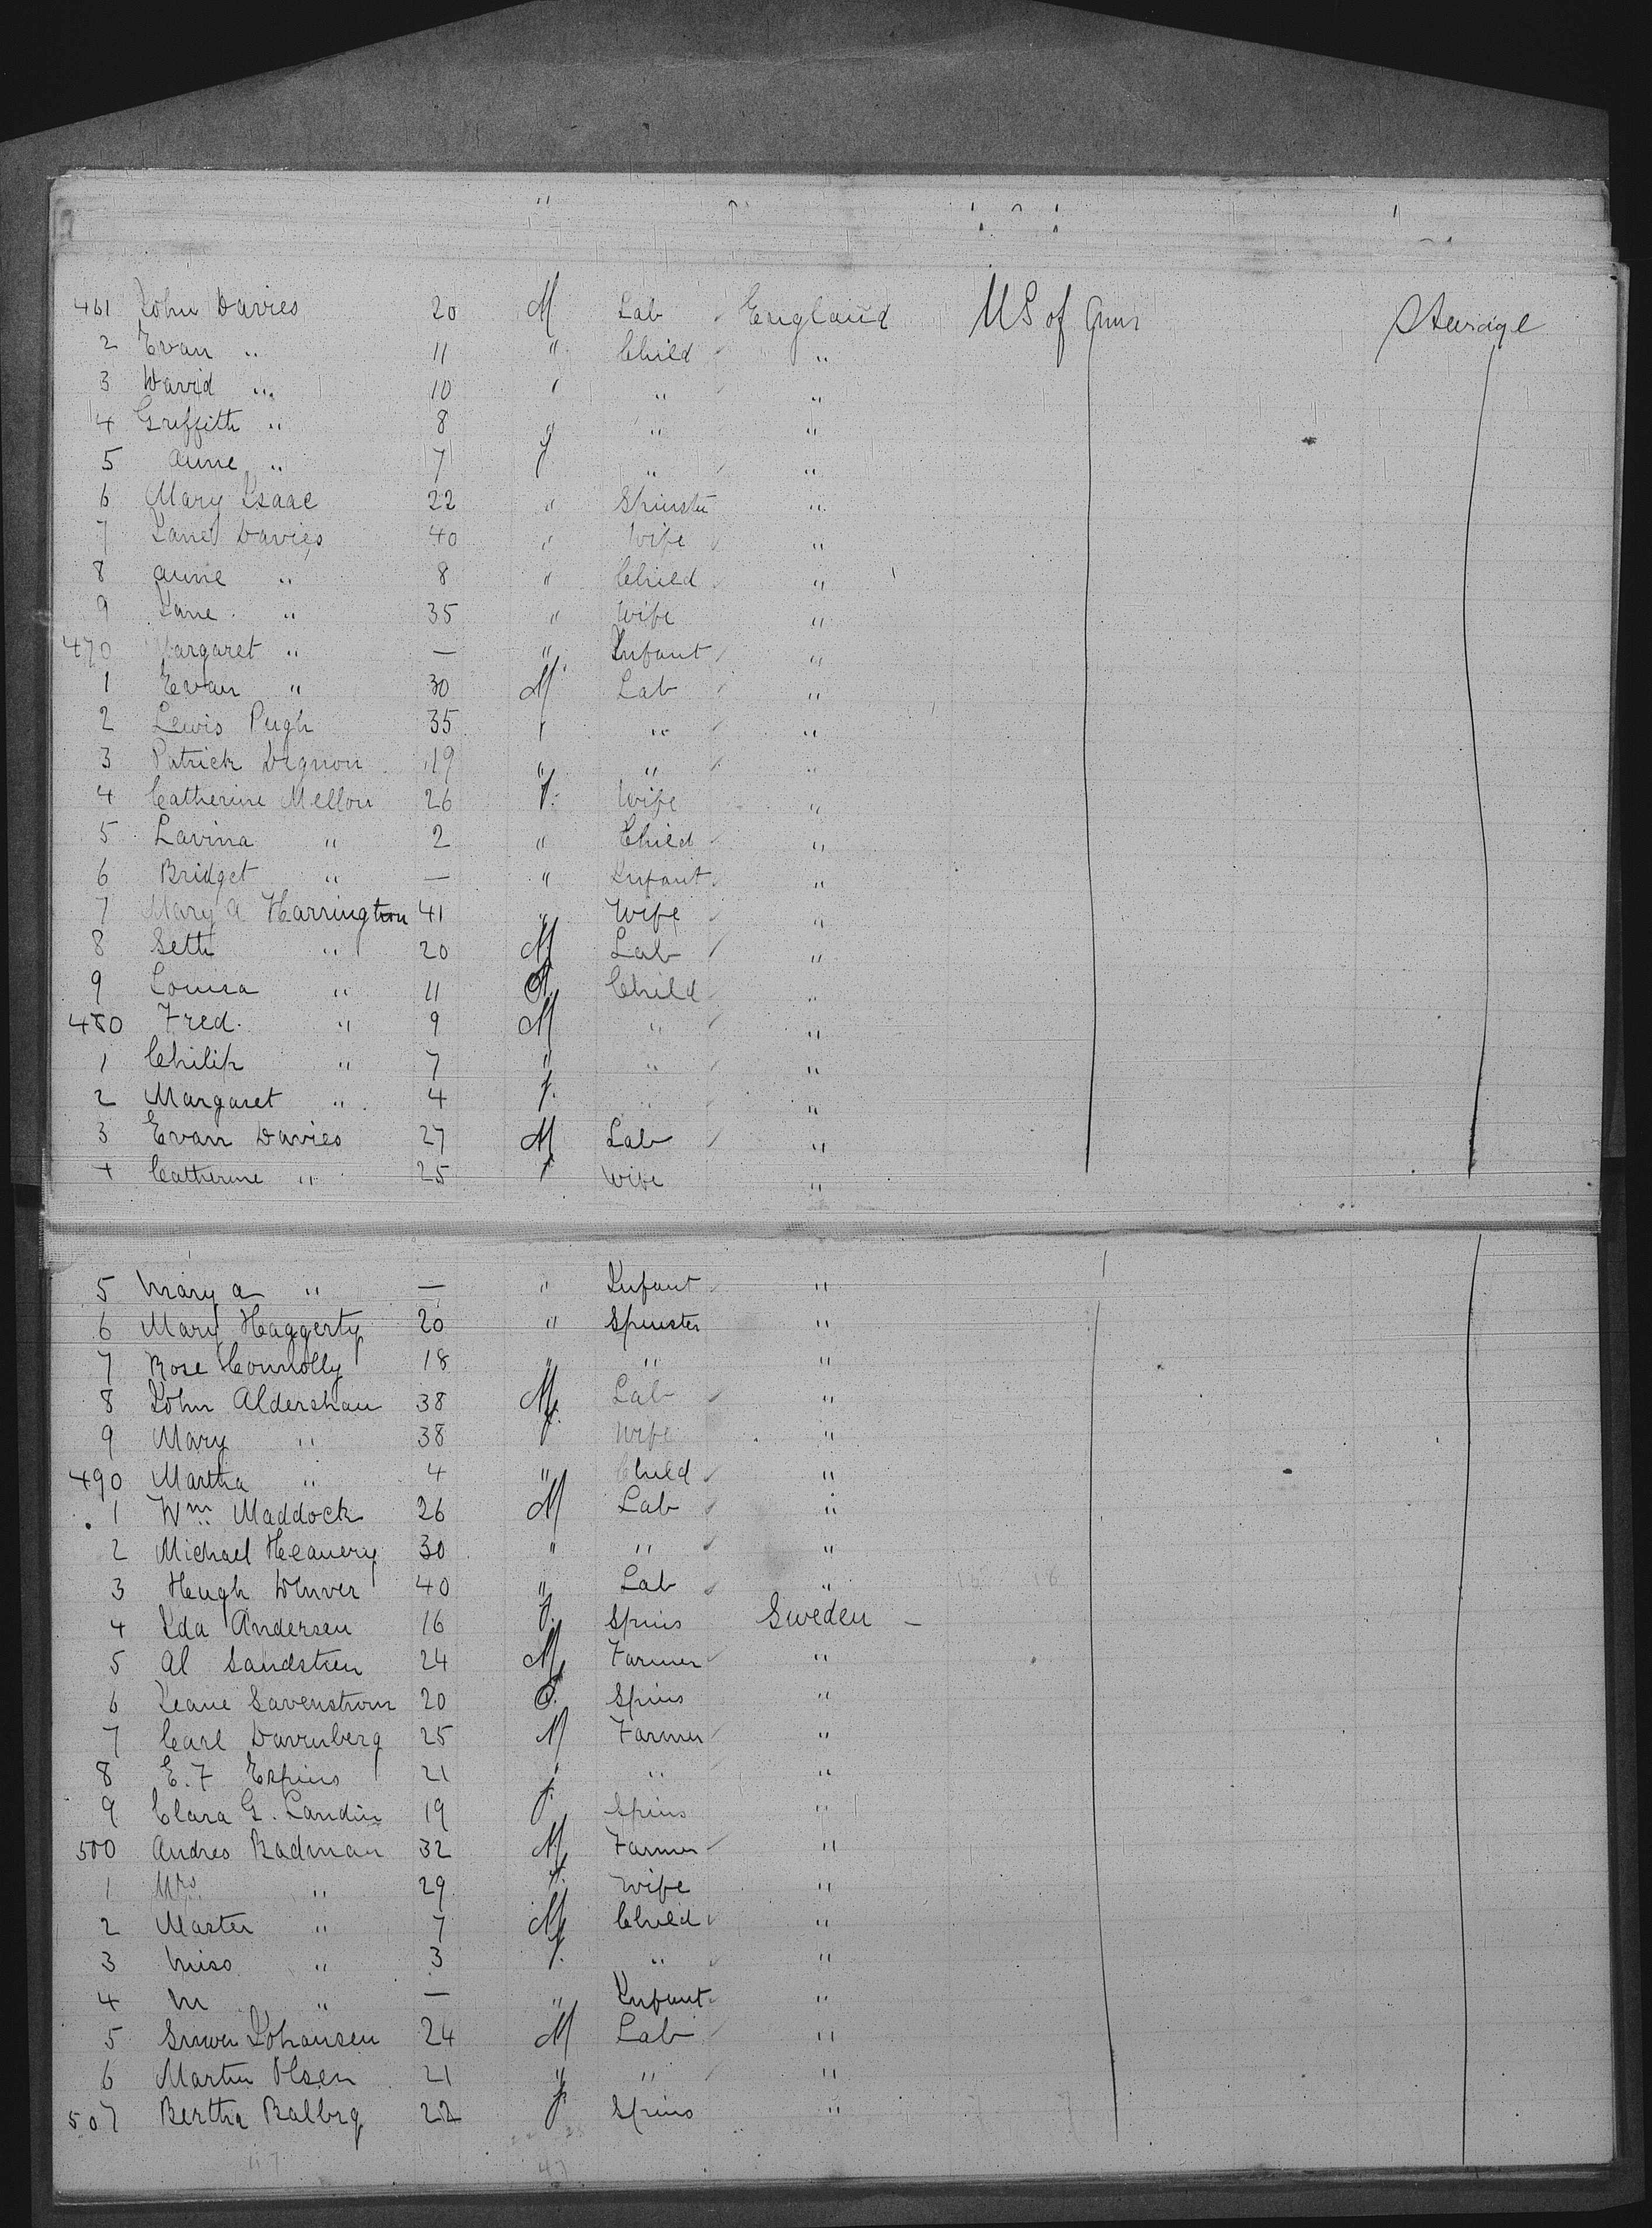 461 John Davies 20 M Lab England US of Amer Steerage
2 Evan " 11 " Child "
3 David " 10 " " "
4 Griffith " 8 " " "
5 Anne " 7 f " "
6 Mary Isaac 22 " Spinster "
7 Jane Davies 40 " Wife "
8 Anne " 8 " Child "
9 Jane " 35 " Wife "
470 Margaret " — " Infant "
1 Evan " 30 M Lab "
2 Lewis Pugh 35 " " "
3 Patrick Dignon 19 " " "
4 Catherine Mellon 26 f. Wife "
5 Lavina " 2 " Child "
6 Bridget " — " Infant "
7 Mary A Harrington 41 " Wife "
8 Seth " 20 M Lab "
9 Louisa " 11 f. Child "
480 Fred. " 9 M " "
1 Philip " 7 " " "
2 Margaret " 4 f. " "
3 Evan Davies 27 M Lab "
4 Catherine " 25 f Wife "
5 Mary A " — " Infant "
6 Mary Haggerty 20 " Spinster "
7 Rose Connolly 18 " " "
8 John Aldershaw 38 M Lab "
9 Mary " 38 f Wife "
490 Martha " 4 " Child "
1 Wm Maddock 26 M Lab "
2 Michael Heavery 30 " " "
3 Hugh 40 " Lab "
4 Ida Andersen 16 f. Spins Sweden
5 Al 24 M Farmer "
6 Savenstrom 20 f. Spins "
7 Carl Davenberg 25 M Farmer "
8 E. F 21 " " "
9 Clara G. Landin 19 f. Spins "
500 Andres Badman 32 M Farmer "
1 Mrs " 29 f. Wife "
2 Master " 7 M Child "
3 Miss " 3 f. " "
4 M " — " Infant "
5 Johansen 24 M Lab "
6 Martin Olsen 21 " " "
507 Bertha 22 f Spins "